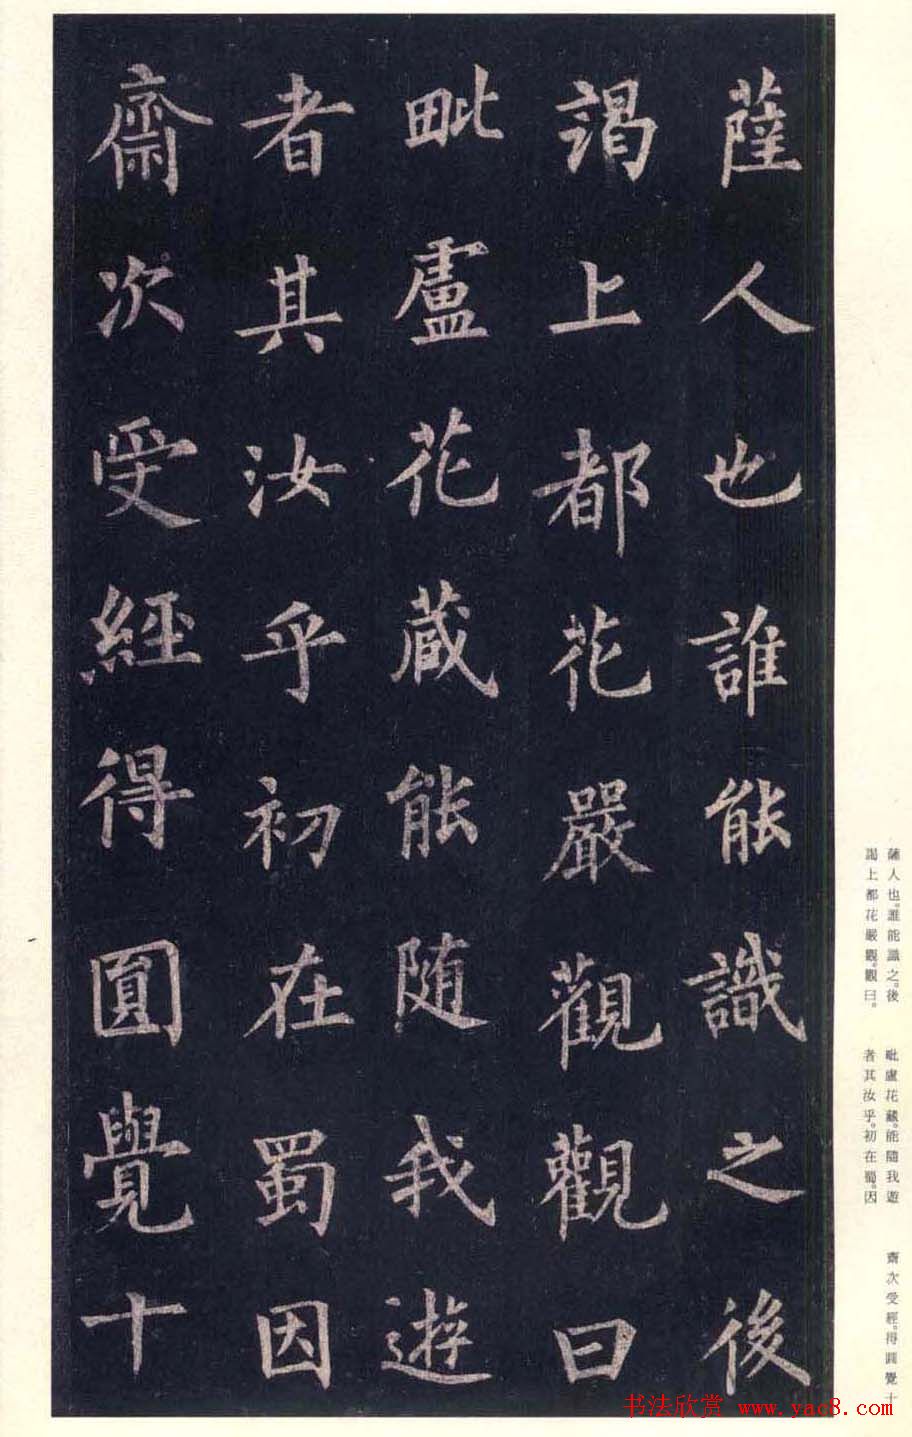 薩人也誰能識之後
謁上都花嚴觀觀曰
毗盧花蔵能随我遊
者其汝乎初在蜀因
齋次受經得圓覺十
薩人也。誰能識之。後
謁上都花嚴觀。觀曰。
毗盧花藏。能隨我遊
者其汝乎。初在蜀。因
齋次受經。得圓覺十
书法欣赏 www.yac8.com